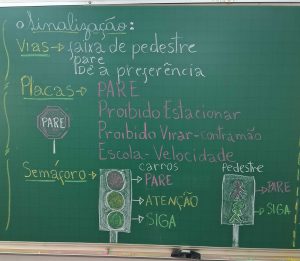 Sinalização:
Vias → faixa de pedestre
pare
Dê a preferência
Placas → PARE
Proibido Estacionar
PARE
Proibido Virar - contramão
Escola - Velocidade
Semáforo → carros pedestre
PARE PARE
ATENÇÃO
SIGA SIGA